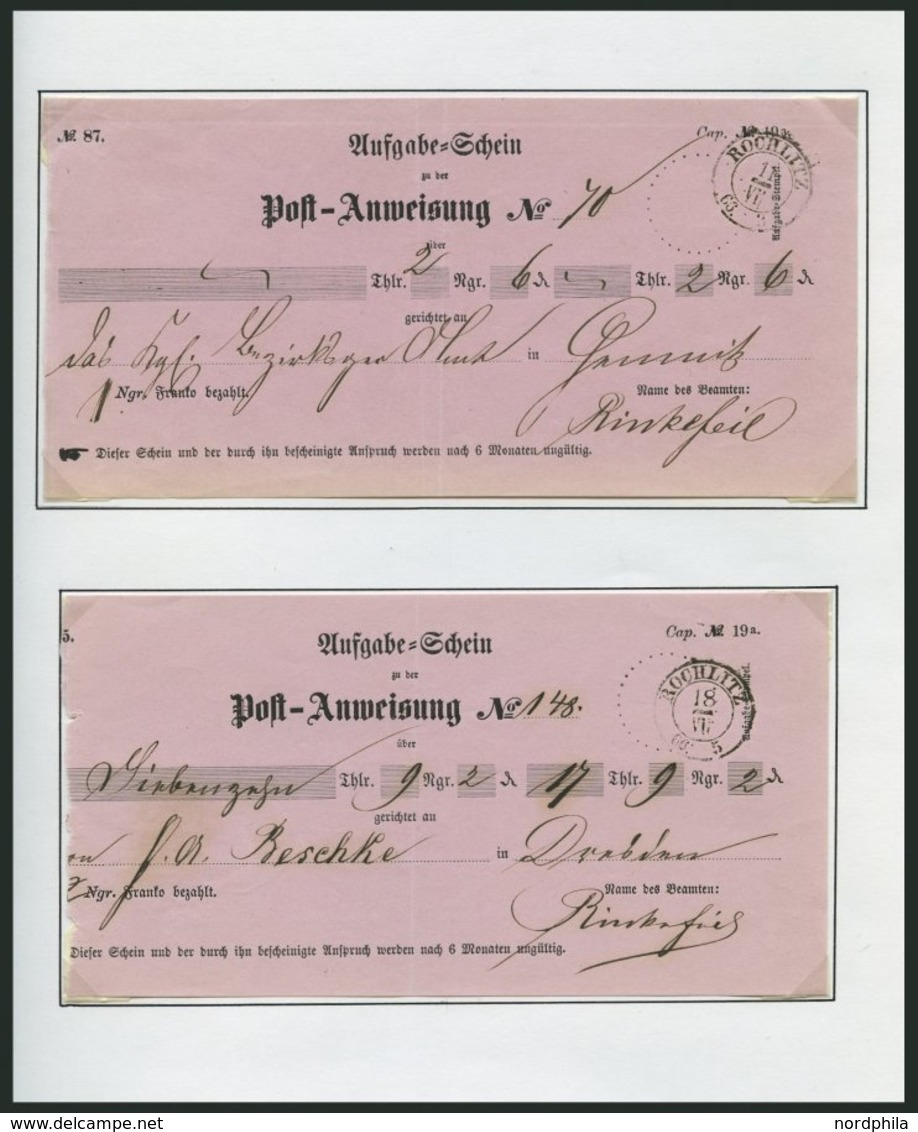 № 87.
Cap. № 19a.
Aufgabe=Schein
ROCHLITZ
11
VII
63. 5
Aufgabe-Stempel.
zu der
Post-Anweisung No 70
über
Thlr. 2 Ngr. 6 ₰ Thlr. 2 Ngr. 6 ₰
gerichtet an
das Kgl. in
1 Ngr. Franko bezahlt.
Name des Beamten:
Rinkefeil
Dieser Schein und der durch ihn bescheinigte Anspruch werden nach 6 Monaten ungültig.
5.
Cap. № 19a.
Aufgabe=Schein
ROCHLITZ
18
VII
5
zu der
Post-Anweisung No 148.
über
Siebenzehn Thlr. 9 Ngr. 2 ₰ 17 Thlr. 9 Ngr. 2 ₰
gerichtet an
A. Reschke in Dresden
Ngr. Franko bezahlt.
Name des Beamten:
Rinkefeil
Dieser Schein und der durch ihn bescheinigte Anspruch werden nach 6 Monaten ungültig.
www.delcampe.net
nordphila